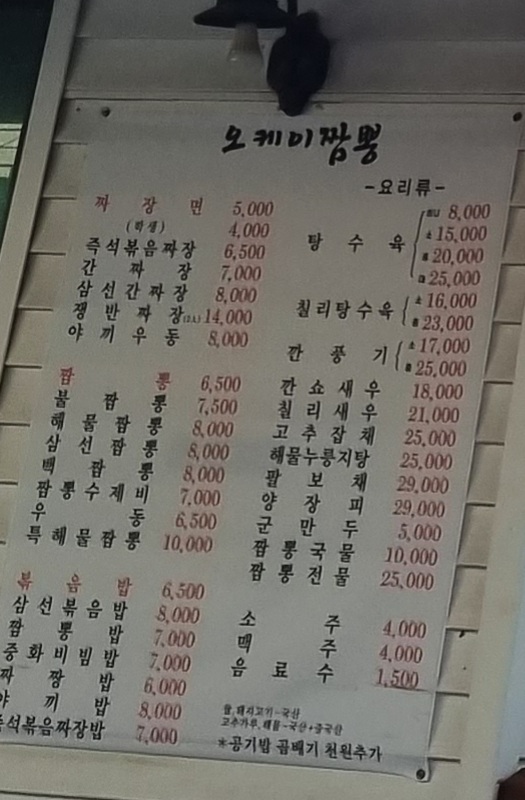 오케이짬뽕
짜장면 5,000
(학생) 4,000
즉석볶음짜장 6,500
간짜장 7,000
삼선간짜장 8,000
쟁반짜장(2人) 14,000
야끼우동 8,000
짬뽕 6,500
불짬뽕 7,500
해물짬뽕 8,000
삼선짬뽕 8,000
백짬뽕 8,000
짬뽕수제비 7,000
우동 6,500
특해물짬뽕 10,000
볶음밥 6,500
삼선볶음밥 8,000
짬뽕밥 7,000
중화비빔밥 7,000
짜짱밥 6,000
야끼밥 8,000
즉석볶음짜장밥 7,000
-요리류-
탕수육 미니 8,000
소 15,000
중 20,000
대 25,000
칠리탕수육 소 16,000
중 23,000
깐풍기 소 17,000
중 25,000
깐쇼새우 18,000
칠리새우 21,000
고추잡채 25,000
해물누룽지탕 25,000
팔보채 29,000
양장피 29,000
군만두 5,000
짬뽕국물 10,000
짬뽕전물 25,000
소주 4,000
맥주 4,000
음료수 1,500
쌀,돼지고기-국산
고추가루,해물-국산+중국산
*공기밥 곱빼기 천원추가